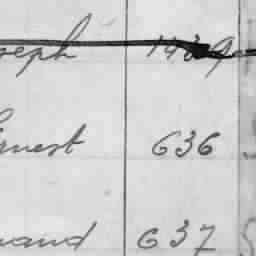 oseph
Ernest 636
nand 637